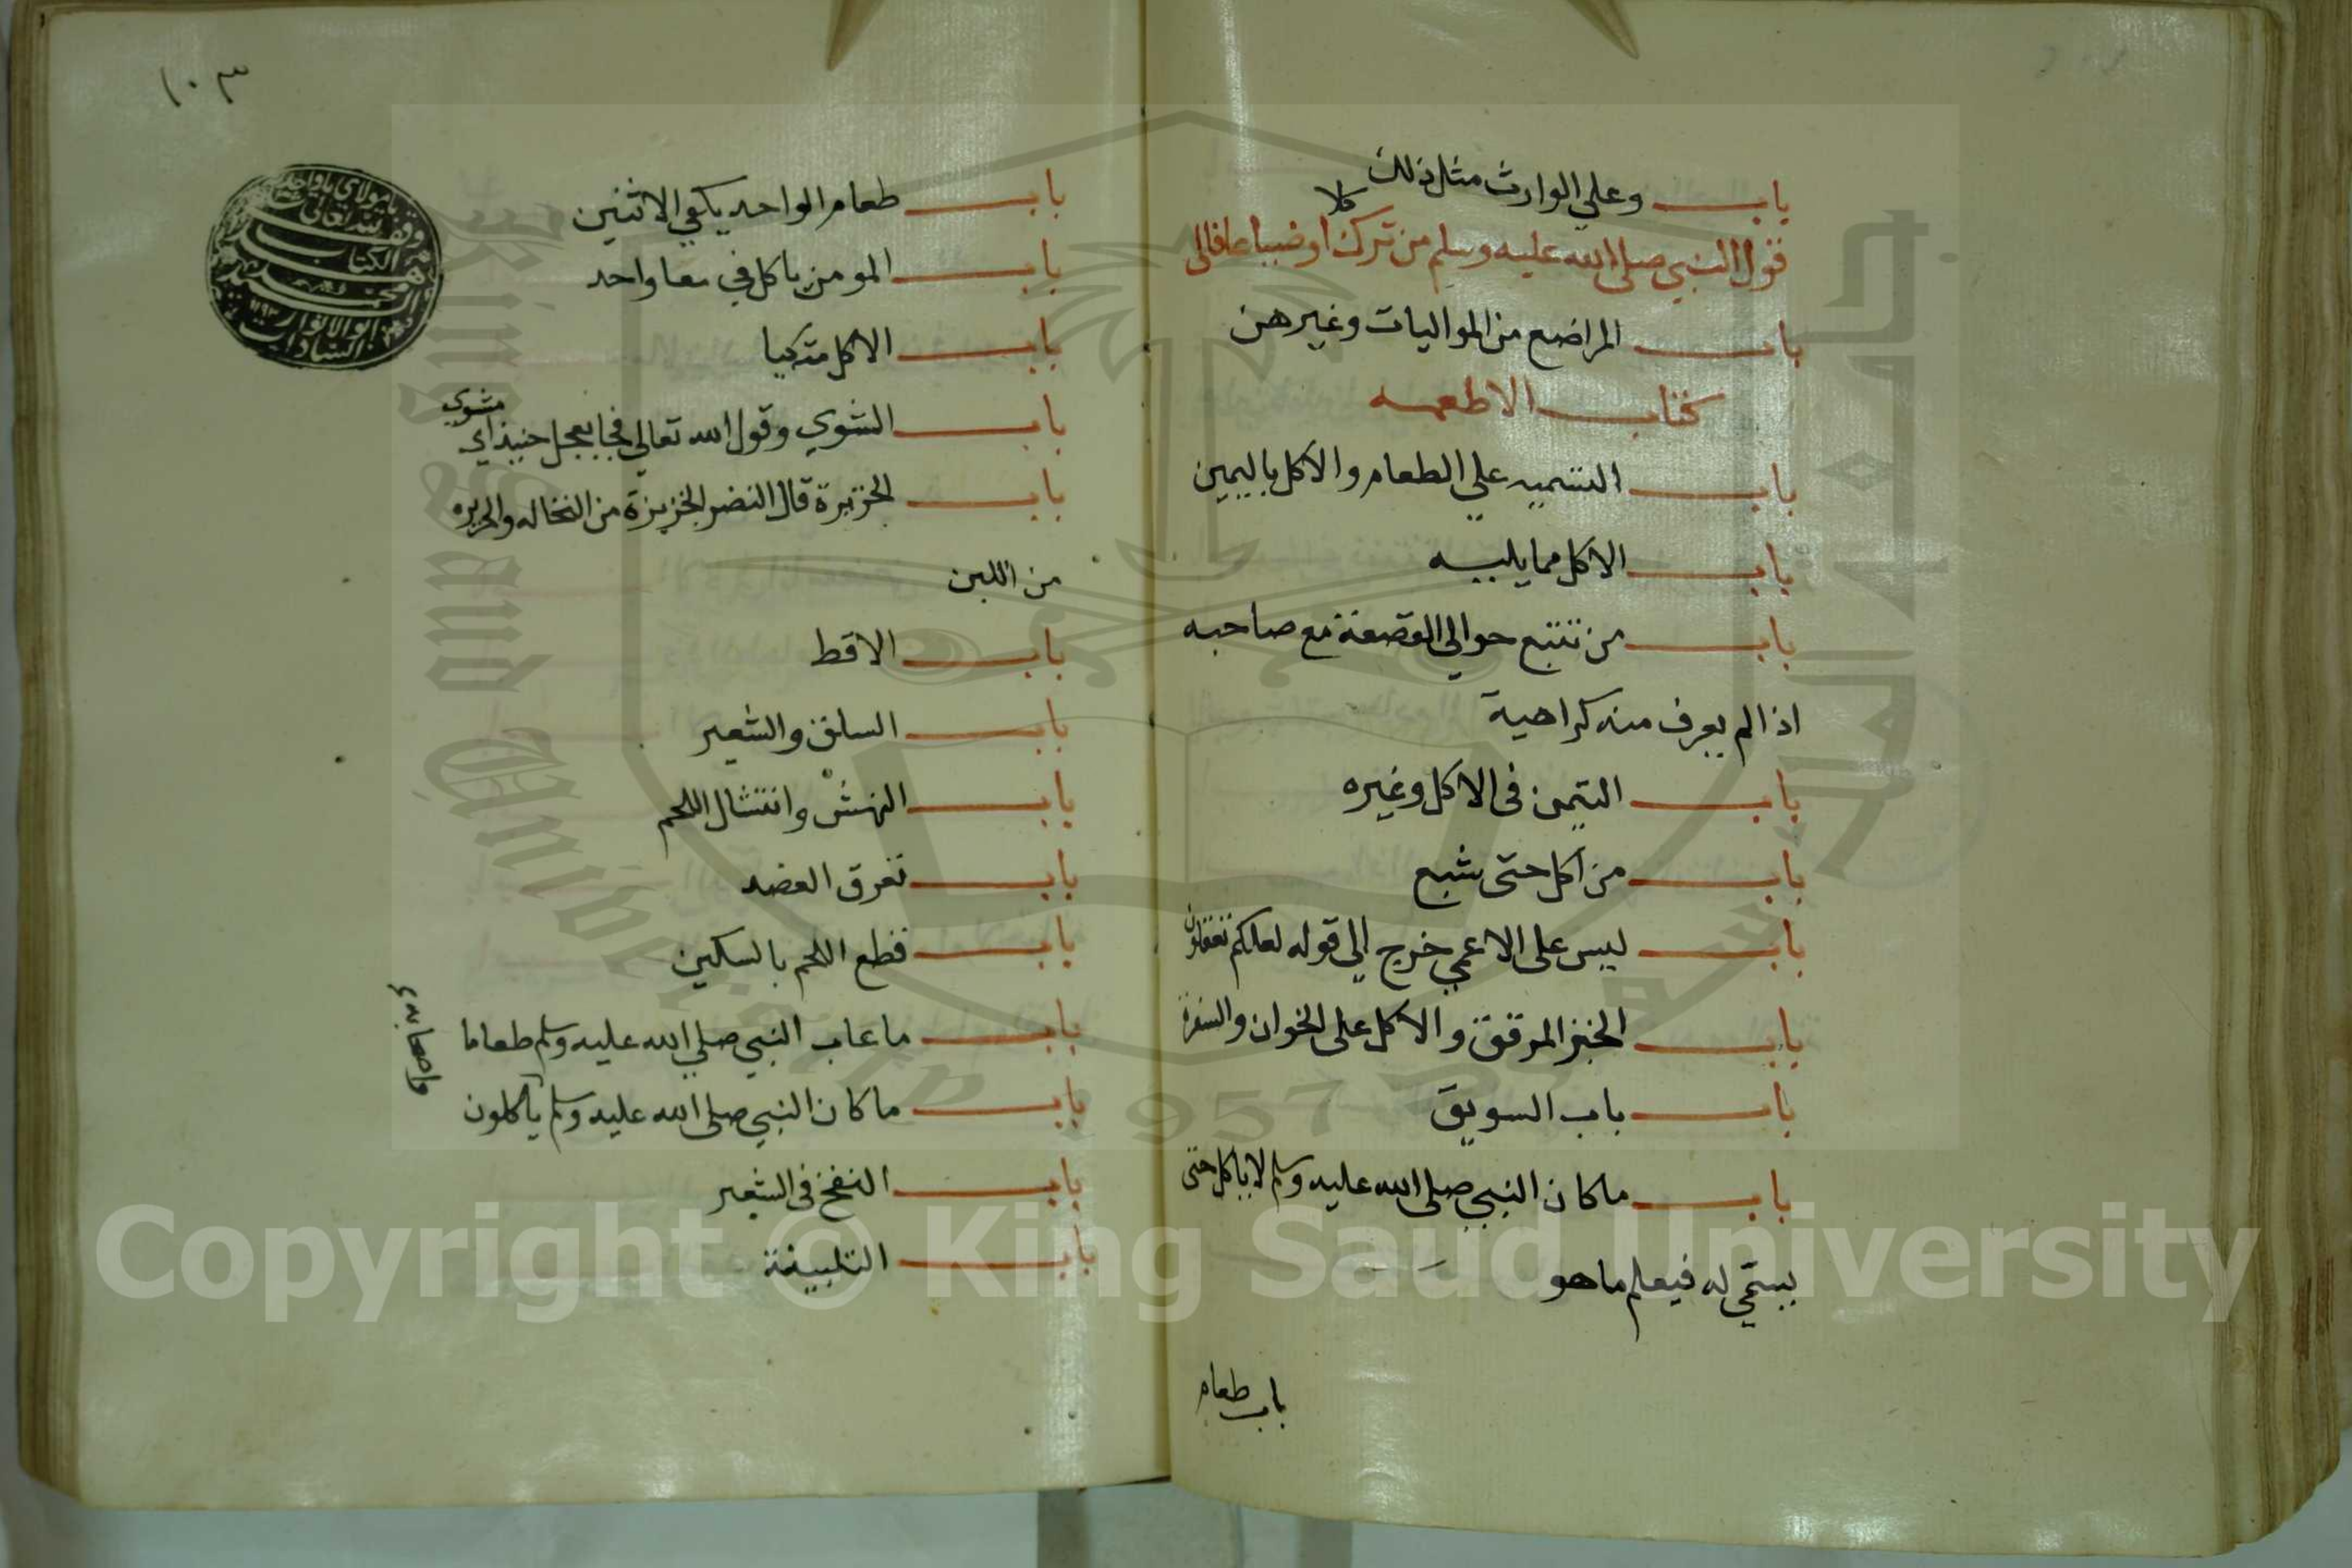 باب وعلي الوارث مثل ذلك
كلا
قول النبي صلى الله عليه وسلم من ترك او ضياعا فالى
باب المراضع من المواليات وغيرهن
كتاب الاطعمه
باب التسميه علي الطعام والاكل باليمين
باب الاكل مما يليه
باب من تتبع حوالي القصعة مع صاحبه
اذا لم يعرف منه كراهية
باب التيمن فى الاكل وغيره
باب من اكل حتى شبع
باب ليس على الاعمي خرج الي قوله لعلكم تعقلون
باب الخبز المرقق والاكل على الخوان والسفرة
باب باب السويق
باب ماكان النبي صلى الله عليه وسلم لا ياكل حتى
يسمي له فيعلم ما هو
باب طعام
١٠٣
باب طعام الواحد يكفي الاثنين
باب المومن ياكل في معا واحد
باب الاكل متكيا
باب الشوي وقول الله تعالي فجا بعجل حنيذ اي مشوي
باب الخزيرة قال النضر الخزيرة من النخاله والحريره
من اللبن
باب الاقط
باب السلق والشعير
باب النهش وانتشال اللحم
باب تعرق العضد
باب قطع اللحم بالسكين
باب ما عاب النبي صلي الله عليه وسلم طعاما
باب ما كان النبي صلى الله عليه وسلم ياكلون
واصحابه
باب النفخ فى الشعير
باب التلبينة
وقف لله تعالى
الكتاب
ابو الانوار
السادات
١١٩٣
King Saud University
1957
Copyright © King Saud University